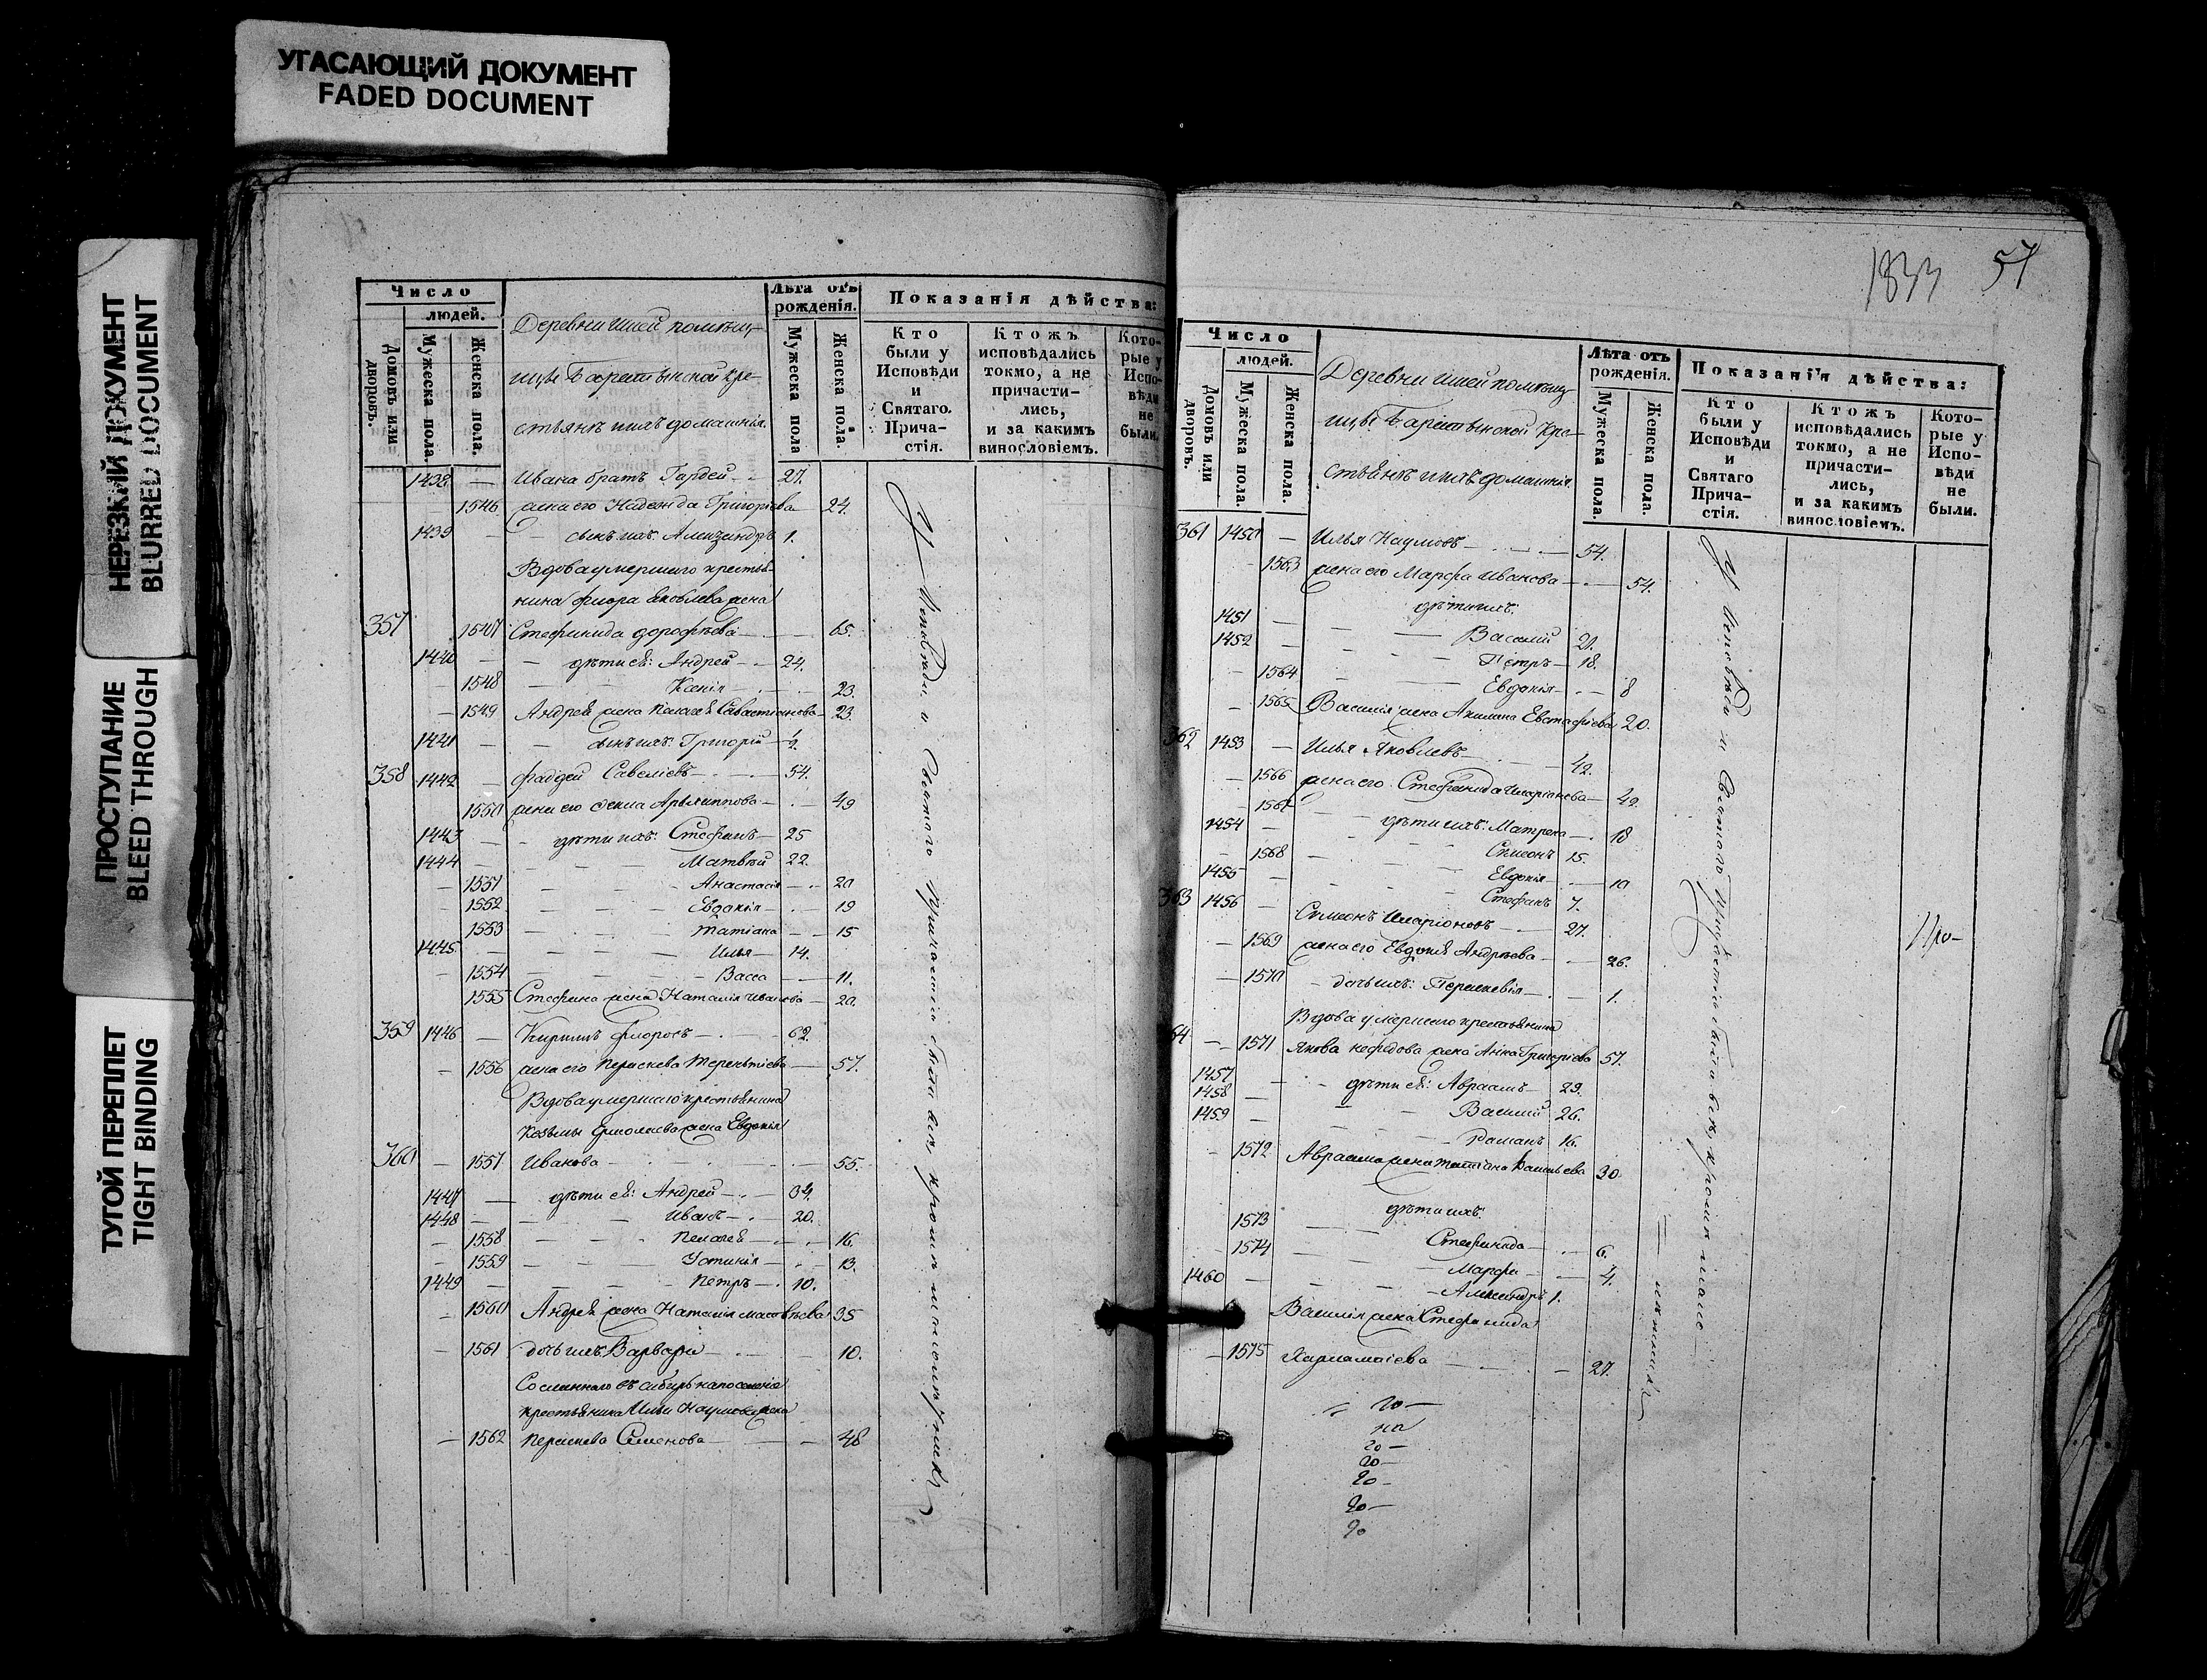 УГАСАЮЩИЙ ДОКУМЕНТ
FADED DOCUMENT
НЕРЕЗКИЙ ДОКУМЕНТ
BLURRED DOCUMENT
ПРОСТУПАНИЕ
BLEED THROUGH
ТУГОЙ ПЕРЕПЛЕТ
TIGHT BINDING
Число
людей.
Домовъ или дворовъ.
Мужеска пола.
Женска пола.
Деревни Ишей помѣщ-
стьянъ и ихъ домашнія.
Лѣта отъ рожденія.
Мужеска пола
Женска пола.
Показанія дѣйства:
Кто были у Исповѣди и Святаго Прича-стія.
Ктожъ исповѣдались токмо, а не причасти-лись, и за какимъ винословіемъ.
Кото-рые у Испо-вѣди не были.
1438 — Ивана братъ Гордей — 27.
1546 жена его Надежда Григоріева 24.
1439 — сынъ ихъ Александръ 1.
Вдова умершаго крестья-
нина Фиора Яковлева жена
357 1547 Стефанида Дорофѣева — 65.
1440 — дѣти еѣ: Андрей — 24.
1548 Ксенія — 23.
1549 Андрея жена Пелагея Савастіанова 23.
1441 — сынъ ихъ Григорій — 1/2
358 1442 — Фаддей Савеліевъ — 54.
1550 жена его Архиппова — 49
1443 — дѣти ихъ: Стефанъ — 25
1444 — Матвѣй 22.
1551 Анастасія — 20
1552 Евдокія — 19
1553 Татіана — 15
1445 — Илья — 14.
1554 Васса — 11.
1555 Стефана жена Наталія Иванова — 20.
359 1446 — Фиоровъ — 62.
1556 жена его Параскева Терентіева — 57.
Вдова умершаго крестьянина
Козьмы Ермолаева жена Евдокія
360 — 1557 Иванова — 55.
1447 — дѣти еѣ: Андрей — 34.
1448 — Иванъ — 20.
1558 Пелагея — 16.
1559 Устинія — 13.
1449 — Петръ — 10.
1560 Андрея жена Наталія Матвѣева 35
1561 дочь ихъ Варвара — 10.
Сосланнаго въ Сибирь на поселеніе
крестьянина Ильи Наумова жена
1562 Параскева Семенова — 48
У Исповѣди и Святаго Причастія были всѣ кромѣ
1833 57
Число
людей.
Домовъ или дворовъ.
Мужеска пола.
Женска пола.
Деревни Ишей помѣщ-
стьянъ и ихъ домашнія.
Лѣта отъ рожденія.
Мужеска пола.
Женска пола.
Показанія дѣйства:
Кто были у Исповѣди и Святаго Прича-стія.
Ктожъ исповѣдались токмо, а не причасти-лись, и за какимъ винословіемъ.
Кото-рые у Испо-вѣди не были.
361 1450 — Илья Наумовъ — 54.
1563 жена его Марфа Иванова — 54.
дѣти ихъ:
1451 — Василій 21.
1452 — Петръ — 18.
1564 Евдокія — 8
1565 Василія жена Акилина Евстафіева 20.
362 1453 — Илья Яковлевъ — 42.
1566 жена его Стефанида Иларіонова — 42.
1567 дѣти ихъ: Матрена — 18
1454 — Симеонъ 15.
1568 Евдокія — 10
1455 — Стефанъ 7.
363 1456 — Симеонъ Иларіоновъ — 27.
1569 жена его Евдокія Андреева — 26.
1570 дочь ихъ: Параскевія — 1.
Вдова умершаго крестьянина
64 — 1571 Якова Нефедова жена Анна Григоріева 57.
1457 — дѣти еѣ: Авраамъ — 29.
1458 — Василій 26.
1459 — Романъ 16.
1572 Авраама жена Татіана Васильева 30.
дѣти ихъ:
1573 Стефанида — 6.
1574 Марфа — 4.
1460 — Александръ 1.
Василія жена Стефанида
1575 Харлампіева — 27.
20 —
20 —
20 —
20 —
20 —
20
У Исповѣди и Святаго Причастія были всѣ, кромѣ